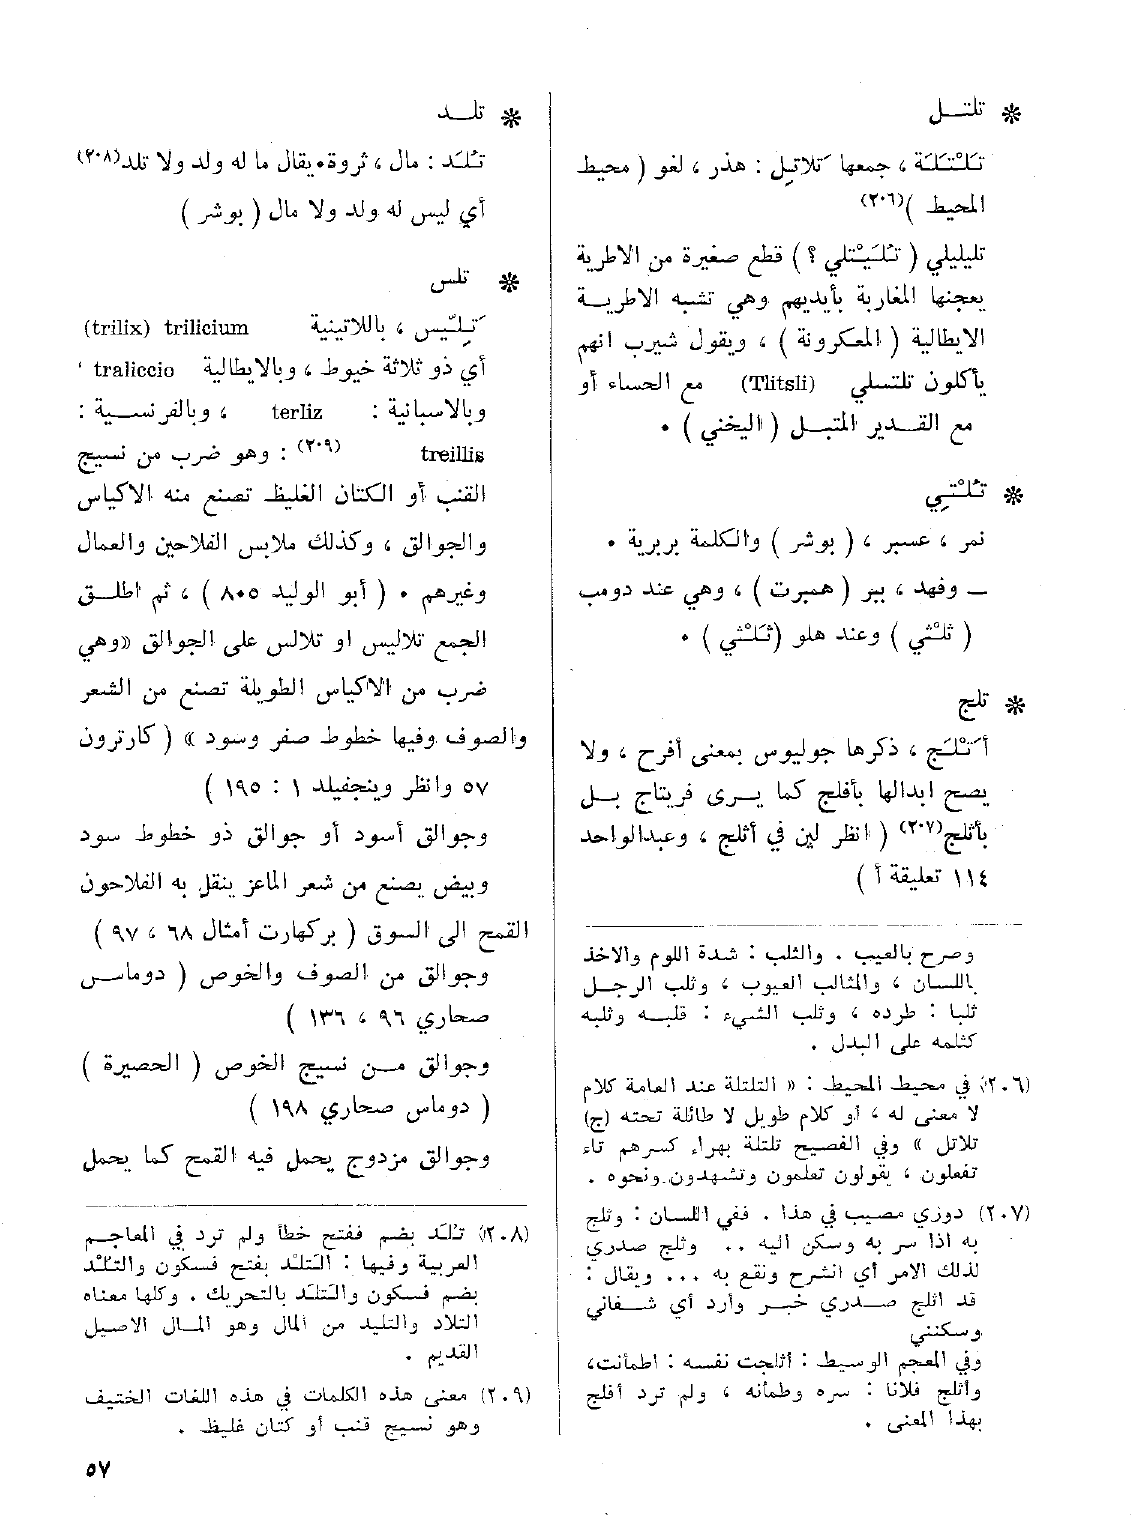 * تلتل
تَلْتَلَة ، جمعها تَلاتِل : هذر ، لغو ( محيط
المحيط )(٢٠٦)
تليليلي ( تُلَيْتلي ؟ ) قطع صغيرة من الاطرية
يعجنها المغاربة بأيديهم وهي تشبه الاطريـة
الايطالية ( المعكرونة ) ، ويقول شيرب انهم
يأكلون تلتسلي (Tlitsli) مع الحساء أو
مع القـدير المتبـل ( اليخني ) ٠
* تُلْتِي
نمر ، عسبر ، ( بوشر ) والكلمة بربرية ٠
— وفهد ، ببر ( همبرت ) ، وهي عند دومب
( تلْثي ) وعند هلو (تُلثي ) ٠
* تلج
أَتْلَج ، ذكرها جوليوس بمعنى أفرح ، ولا
يصح ابدالها بأفلج كما يـرى فريتاج بـل
بأثلج(٢٠٧) ( انظر لين في أثلج ، وعبدالواحد
١١٤ تعليقة أ )
وصرح بالعيب . والثلب : شدة اللوم والاخذ
باللسان ، والمثالب العيوب ، وثلب الرجـل
ثلبا : طرده ، وثلب الشيء : قلبـه وثلبه
كثلمه على البدل .
(٢٠٦) في محيط المحيط : « التلتلة عند العامة كلام
لا معنى له ، أو كلام طويل لا طائلة تحته (ج)
تلاتل » وفي الفصيح تلتلة بهراء كسرهم تاء
تفعلون ، يقولون تعلمون وتشهدون ونحوه .
(٢٠٧) دوزي مصيب في هذا . ففي اللسان : وثلج
به اذا سر به وسكن اليه .. وثلج صدري
لذلك الامر أي انشرح ونقع به ... ويقال :
قد اثلج صـدري خبـر وأرد أي شـفاني
وسكنني
وفي المعجم الوسيط : أثلجت نفسه : اطمأنت،
وأثلج فلانا : سره وطمأنه ، ولم ترد أفلج
بهذا المعنى .
* تلـد
تُلَد : مال ، ثروة٠يقال ما له ولد ولا تلد(٢٠٨)
أي ليس له ولد ولا مال ( بوشر )
* تلس
تَلِّيس ، باللاتينية trilicium (trilix)
أي ذو ثلاثة خيوط ، وبالايطالية traliccio ‘
وبالاسبانية : terliz ، وبالفرنسـية :
treillis (٢٠٩) : وهو ضرب من نسيج
القنب أو الكتان الغليظ تصنع منه الاكياس
والجوالق ، وكذلك ملابس الفلاحين والعمال
وغيرهم ٠ ( أبو الوليد ٨٠٥ ) ، ثم اطلـق
الجمع تلاليس او تلالس على الجوالق «وهي
ضرب من الاكياس الطويلة تصنع من الشعر
والصوف وفيها خطوط صفر وسود » ( كارترون
٥٧ وانظر وينجفيلد ١ : ١٩٥ )
وجوالق أسود أو جوالق ذو خطوط سود
وبيض يصنع من شعر الماعز ينقل به الفلاحون
القمح الى السوق ( بركهارت أمثال ٦٨ ، ٩٧ )
وجوالق من الصوف والخوص ( دوماس
صحاري ٩٦ ، ١٣٦ )
وجوالق مـن نسيج الخوص ( الحصيرة )
( دوماس صحاري ١٩٨ )
وجوالق مزدوج يحمل فيه القمح كما يحمل
(٢٠٨) تُلَد بضم ففتح خطأ ولم ترد في المعاجم
العربية وفيها : التَلْد بفتح فسكون والتُلْد
بضم فسكون والتَلَد بالتحريك . وكلها معناه
التلاد والتليد من المال وهو المـال الاصيل
القديم .
(٢٠٩) معنى هذه الكلمات في هذه اللغات الختيف
وهو نسيج قنب أو كتان غليظ .
٥٧